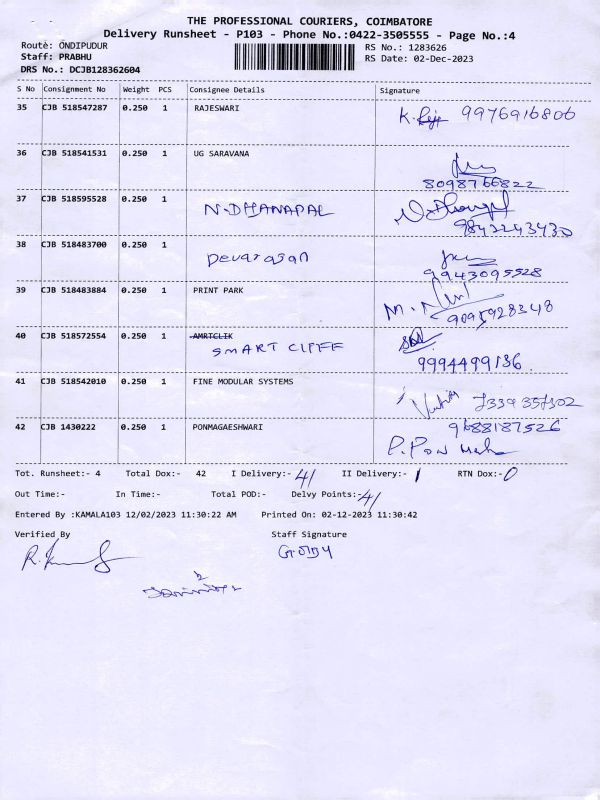 THE PROFESSIONAL COURIERS, COIMBATORE
Delivery Runsheet - P103 - Phone No.:0422-3505555 - Page No.:4
Route: ONDIPUDUR
RS No.: 1283626
Staff: PRABHU
RS Date: 02-Dec-2023
DRS No.: DCJB128362604
S No Consignment No Weight PCS Consignee Details Signature
35 CJB 518547287 0.250 1 RAJESWARI K. 9976916806
36 CJB 518541531 0.250 1 UG SARAVANA
8098766822
37 CJB 518595528 0.250 1 N.DHANAPAL
9842243430
38 CJB 518483700 0.250 1 Devarasan
9943095528
39 CJB 518483884 0.250 1 PRINT PARK
9095928348
40 CJB 518572554 0.250 1 AMRTCLIK
SMART CLIFE
9994499136
41 CJB 518542010 0.250 1 FINE MODULAR SYSTEMS 7339357302
42 CJB 1430222 0.250 1 PONMAGAESHWARI 9688187526
P. Pon
Tot. Runsheet:- 4 Total Dox:- 42 I Delivery:- 41 II Delivery:- 1 RTN Dox:- 0
Out Time:- In Time:- Total POD:- Delvy Points:- 41
Entered By :KAMALA103 12/02/2023 11:30:22 AM Printed On: 02-12-2023 11:30:42
Verified By Staff Signature